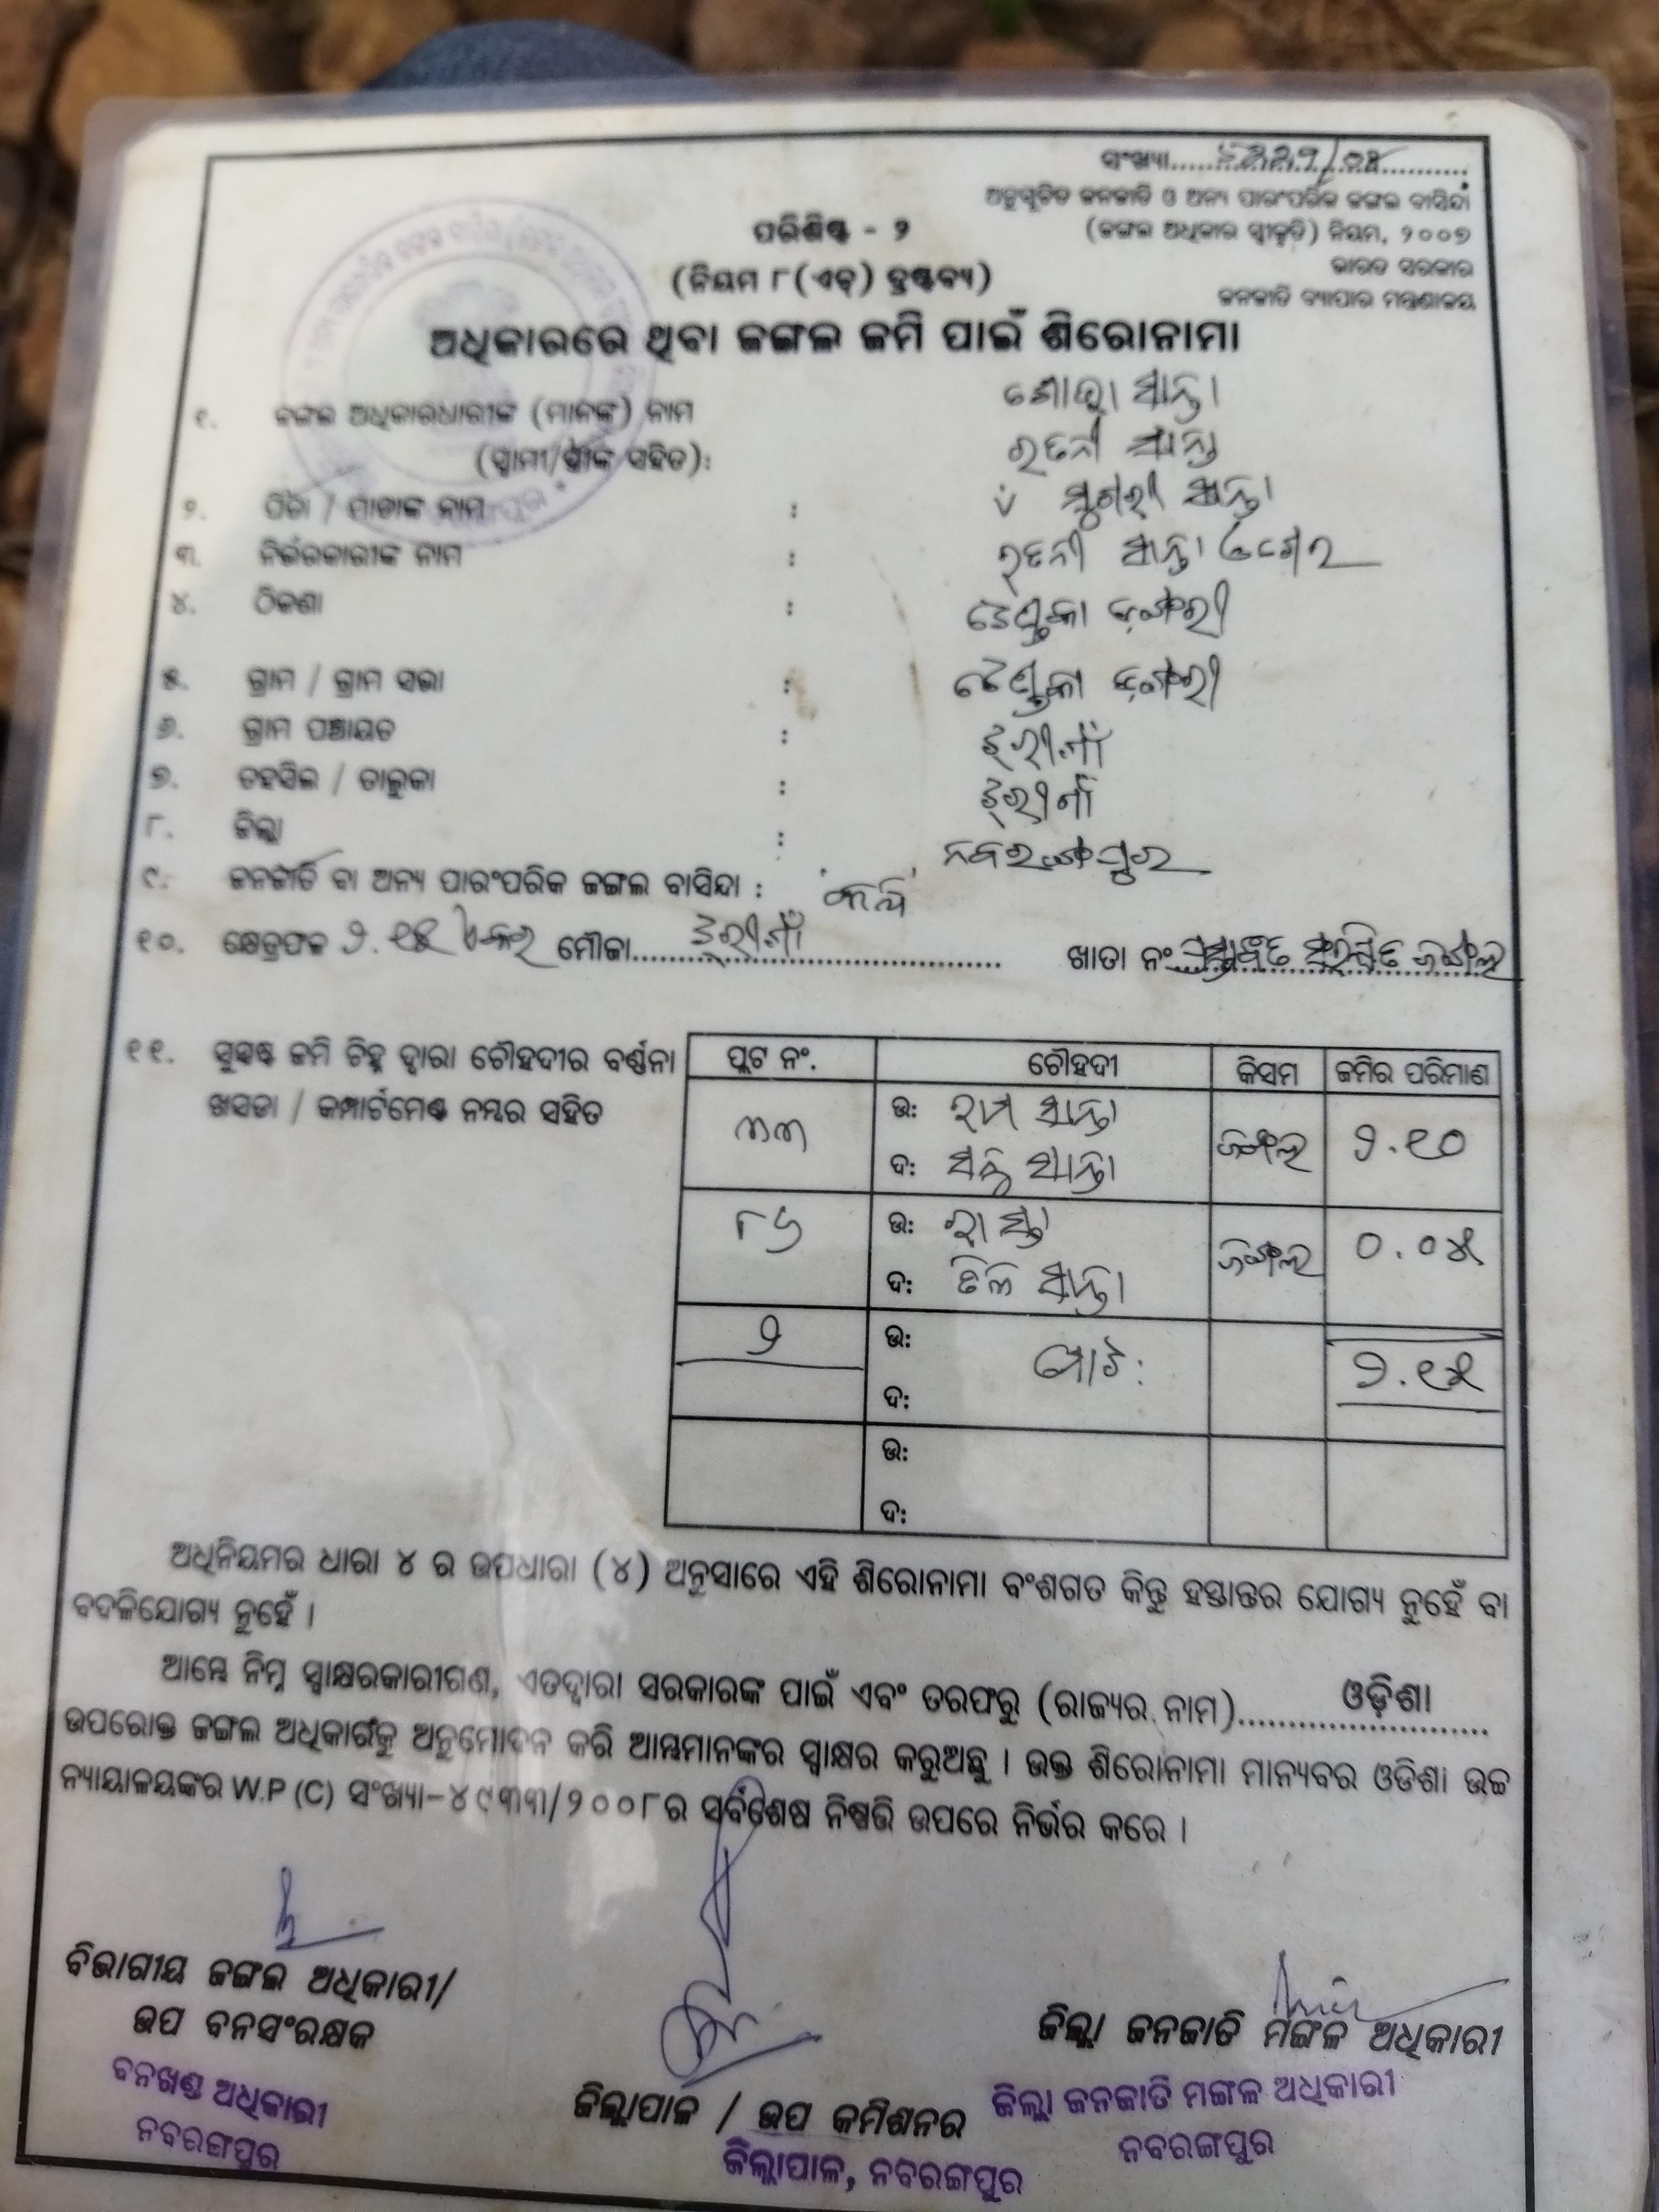 ସଂଖ୍ୟା
ଅନୁସୂଚିତ ଜନଜାତି ଓ ଅନ୍ୟ ପାରଂପରିକ ଜଙ୍ଗଲ ବାସିନ୍ଦା
(ଜଙ୍ଗଲ ଅଧିକାର ସ୍ୱୀକୃତି) ନିୟମ, ୨୦୦୭
ଭାରତ ସରକାର
ଜନଜାତି ବ୍ୟାପାର ମନ୍ତ୍ରଣାଳୟ
ପରିଶିଷ୍ଟ - ୨
(ନିୟମ ୮(ଏଚ୍) ଦ୍ରଷ୍ଟବ୍ୟ)
ଅଧିକାରରେ ଥିବା ଜଙ୍ଗଲ ଜମି ପାଇଁ ଶିରୋନାମା
୧. ଜଙ୍ଗଲ ଅଧିକାରଧାରୀଙ୍କ (ମାନଙ୍କ) ନାମ ସାନ୍ତା
(ସ୍ୱାମୀ/ସ୍ତ୍ରୀଙ୍କ ସହିତ): ରତନୀ ସାନ୍ତା
୨. ପିତା / ମାତାଙ୍କ ନାମ : ସାନ୍ତା
୩. ନିର୍ଭରକାରୀଙ୍କ ନାମ : ରତନୀ ସାନ୍ତା
୪. ଠିକଣା :
୫. ଗ୍ରାମ / ଗ୍ରାମ ସଭା :
୬. ଗ୍ରାମ ପଞ୍ଚାୟତ : ଝରୀଗାଁ
୭. ତହସିଲ / ତାଲୁକା : ଝରୀଗାଁ
୮. ଜିଲ୍ଲା : ନବରଙ୍ଗପୁର
୯. ଜନଜାତି ବା ଅନ୍ୟ ପାରଂପରିକ ଜଙ୍ଗଲ ବାସିନ୍ଦା :
୧୦. କ୍ଷେତ୍ରଫଳ ୨.୧୫ ଏକର ମୌଜା ଝରୀଗାଁ ଖାତା ନଂ ପ୍ରସ୍ତାବିତ ସଂରକ୍ଷିତ ଜଙ୍ଗଲ
୧୧. ସୁସ୍ପଷ୍ଟ ଜମି ଚିହ୍ନ ଦ୍ୱାରା ଚୌହଦୀର ବର୍ଣ୍ଣନା
ଖସଡା / କମ୍ପାର୍ଟମେଣ୍ଟ ନମ୍ବର ସହିତ
ପ୍ଲଟ ନଂ. ଚୌହଦୀ କିସମ ଜମିର ପରିମାଣ
୩୩ ଉ: ରାମ ସାନ୍ତା ଜଙ୍ଗଲ ୨.୧୦
ଦ: ସନୁ ସାନ୍ତା
୮୬ ଉ: ରାସ୍ତା ଜଙ୍ଗଲ ୦.୦୫
ଦ: ତିଳି ସାନ୍ତା
୨ ଉ: ମୋଟ: ୨.୧୫
ଦ:
ଉ:
ଦ:
ଅଧିନିୟମର ଧାରା ୪ ର ଉପଧାରା (୪) ଅନୁସାରେ ଏହି ଶିରୋନାମା ବଂଶଗତ କିନ୍ତୁ ହସ୍ତାନ୍ତର ଯୋଗ୍ୟ ନୁହେଁ ବା
ବଦଳିଯୋଗ୍ୟ ନୁହେଁ ।
ଆମ୍ଭେ ନିମ୍ନ ସ୍ୱାକ୍ଷରକାରୀଗଣ, ଏତଦ୍ୱାରା ସରକାରଙ୍କ ପାଇଁ ଏବଂ ତରଫରୁ (ରାଜ୍ୟର ନାମ) ଓଡ଼ିଶା
ଉପରୋକ୍ତ ଜଙ୍ଗଲ ଅଧିକାରକୁ ଅନୁମୋଦନ କରି ଆମ୍ଭମାନଙ୍କର ସ୍ୱାକ୍ଷର କରୁଅଛୁ । ଉକ୍ତ ଶିରୋନାମା ମାନ୍ୟବର ଓଡିଶା ଉଚ୍ଚ
ନ୍ୟାୟାଳୟଙ୍କର W.P (C) ସଂଖ୍ୟା-୪୯୩୩/୨୦୦୮ର ସର୍ବଶେଷ ନିଷ୍ପତ୍ତି ଉପରେ ନିର୍ଭର କରେ ।
ବିଭାଗୀୟ ଜଙ୍ଗଲ ଅଧିକାରୀ/
ଉପ ବନସଂରକ୍ଷକ
ବନଖଣ୍ଡ ଅଧିକାରୀ
ନବରଙ୍ଗପୁର
ଜିଲ୍ଲାପାଳ / ଉପ କମିଶନର
ଜିଲ୍ଲାପାଳ, ନବରଙ୍ଗପୁର
ଜିଲ୍ଲା ଜନଜାତି ମଙ୍ଗଳ ଅଧିକାରୀ
ଜିଲ୍ଲା ଜନଜାତି ମଙ୍ଗଳ ଅଧିକାରୀ
ନବରଙ୍ଗପୁର